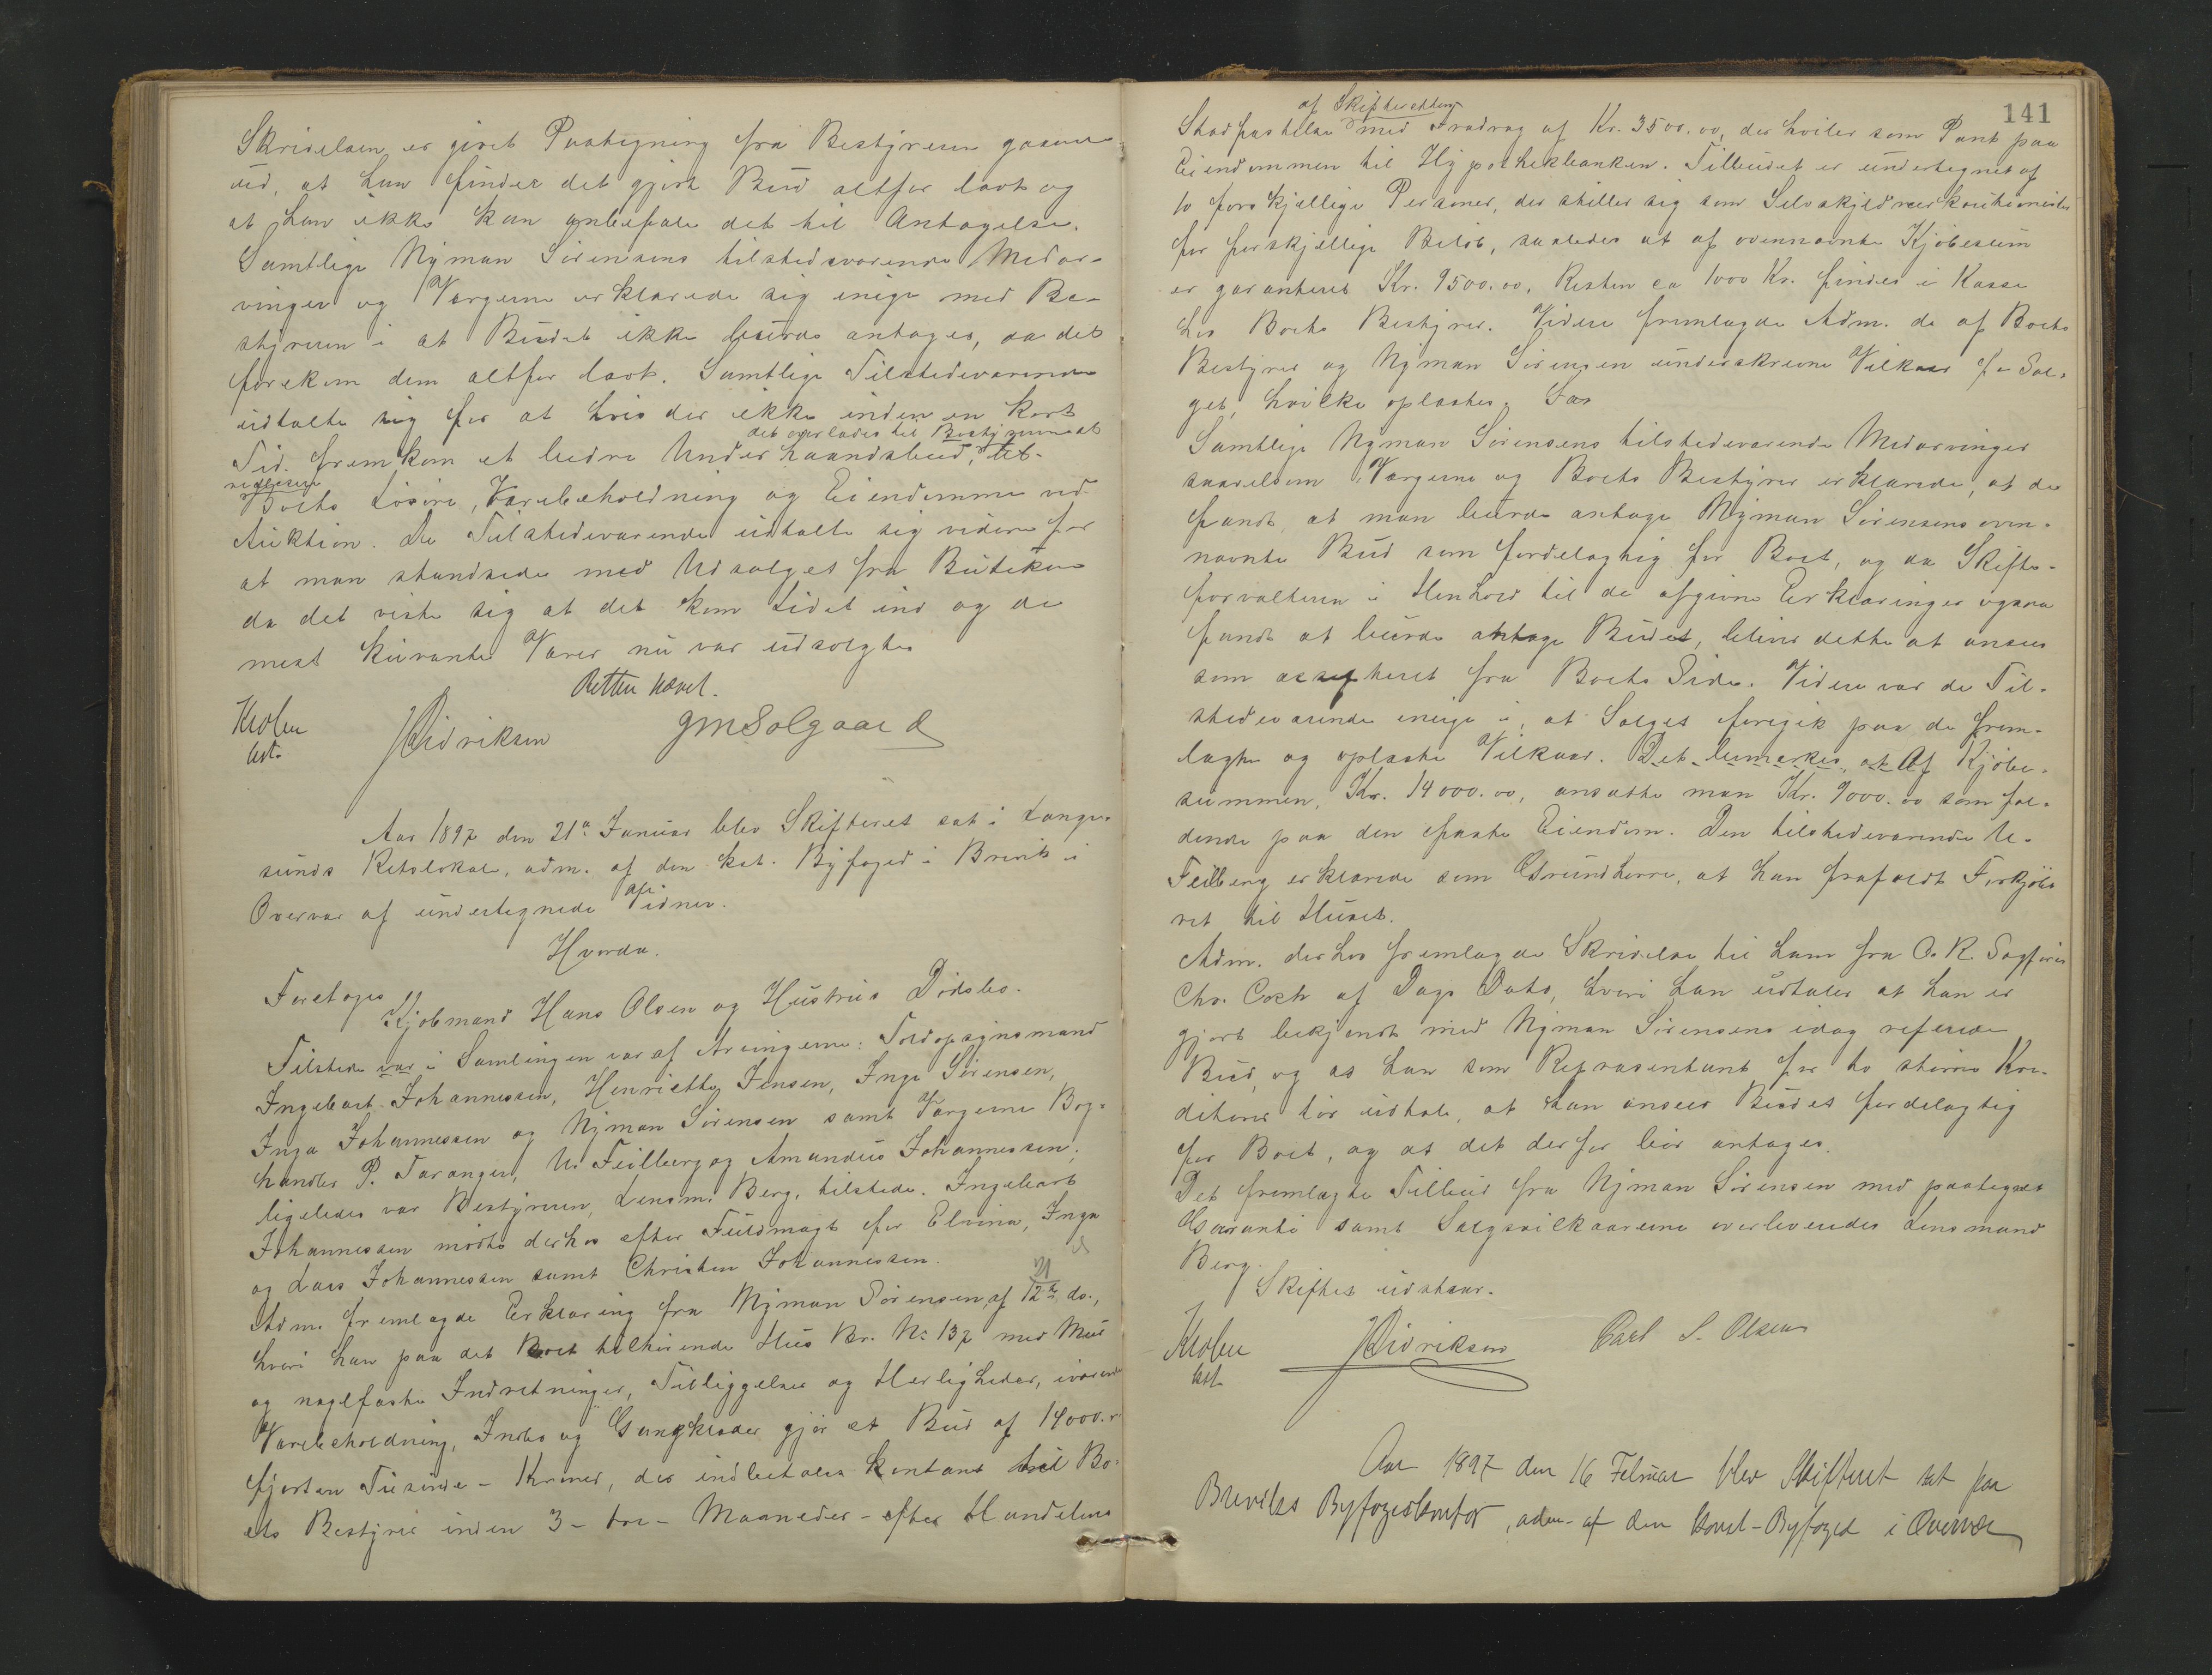 Skrivelsen er givet Paategning fra Bestyreren gaaende
ud, at han finder det gjort Bud altfor lavt og
at han ikke kan anbefale det til Antagelse.
Samtlige Nyman Sørensens tilstedeværende Medar-
vinger og Værgerne erklærede sig enige med Be-
styreren i at Budet ikke burde antages, da det
forekom dem altfor lavt. Samtlige Tilstedeværende
udtalte sig for at hvis der ikke inden en kort
det overlades til Bestyreren at
Tid fremkom et bedre Underhaandsbud,
realisere
Boets Løsøre, Varebeholdning og Eiendomme ved
Auktion. De Tilstedeværende udtalte sig videre for
at man standsede med Udsalget fra Butiken
da det viste sig at det kom lidet ind og de
mest kurante Varer nu var udsolgte
Retten hævet.
HDidriksen GMSolgaard
Aar 1897 den 21de Januar blev Skifteret sat i Lange-
sunds Retslokale, adm. af den kst. Byfoged i Brevik i
Overvær af undertegnede Vidner.
Hvorda.
Foretoges
Kjøbmand Hans Olsen og Hustrus Dødsbo.
Tilstede var i Samlingen var af Arvingerne: Toldopsynsmand
Ingebart Johannessen, Henriette Jensen, Inge Sørensen,
Inga Johannessen og Nyman Sørensen samt Værgerne Bog-
handler P. Taranger, U. Feilberg og Amandus Johannessen;
ligeledes var Bestyreren, Lensm. Berg, tilstede. Ingebart
Johannessen mødte derhos efter Fuldmagt for Elvina, Inga
og Lars Johannessen samt Christen Johannessen.
21
Adm. fremlagde Erklæring fra Nyman Sørensen af 12te ds.,
hvori han paa det Boet tilhørende Hus Br. No 137 med Mur
og naglfaste Indretninger, Tilliggelser og Herligheder, iværende
Varebeholdning, Indbo og Gangklæder gjør et Bud af 14000.
fjorten Tusinde - Kroner, der indbetales kontant til Bo-
ets Bestyrer inden 3 - tre - Maaneder - efter Handelens
141
af Skifteretten
Stadfæstelse med Fradrag af Kr. 3500.00, der hviler som Pant paa
Eiendommen til Hypothekbanken. Tilbudet er undertegnet af
10 forskjellige Personer, der stiller sig som Selvskyldnerkautionister
for forskjellige Beløb, saaledes at af ovennævnte Kjøbesum
er garanteret Kr. 9500.00. Resten ca 1000 Kr. findes i Kasse
hos Boets Bestyrer. Videre fremlagde Adm. de af Boets
Bestyrer og Nyman Sørensen underskrevne Vilkaar for Sal-
get, hvilke oplæstes.
Samtlige Nyman Sørensens tilstedeværende Medarvinger
saavelsom Værgerne og Boets Bestyrer erklærede, at de
fandt, at man burde antage Nyman Sørensens oven-
nævnte Bud som fordelagtig for Boet, og da Skifte-
forvalteren i Henhold til de afgivne Erklæringer ogsaa
fandt at burde antage Budet, bliver dette at ansees
som accepteret fra Boets Side. Videre var de Til-
stedeværende enige i, at Salget foregik paa de frem-
lagte og oplæste Vilkaar. Det bemærkes, at Af Kjøbe-
summen, Kr. 14000.00, ansatte man Kr. 9000.00 som fal-
dende paa den faste Eiendom. Den tilstedeværende U.
Feilberg erklærede som Grundherre, at han frafaldt Forkjøbs
ret til Huset.
Adm. derhos fremlagde Skrivelse til ham fra O.R. Sagfører
Chr. Coch af Dags Dato, hvori han udtaler at han er
gjort bekjendt med Nyman Sørensens idag refererede
Bud, og at han som Repræsentant for to større Kre-
ditorer tør udtale, at han ansees Budet fordelagtig
for Boet, og at det derfor bør antages.
Det fremlagte Tilbud fra Nyman Sørensen med paategnet
Garanti samt Salgsvilkaarene overleveredes Lensmand
Berg.
Skiftet udstaar.
HDidriksen Carl S. Olsen
Aar 1897 den 16 Februar blev Skifteret sat paa
Breviks Byfogedkontor, adm. af den konst. Byfoged i Overvær